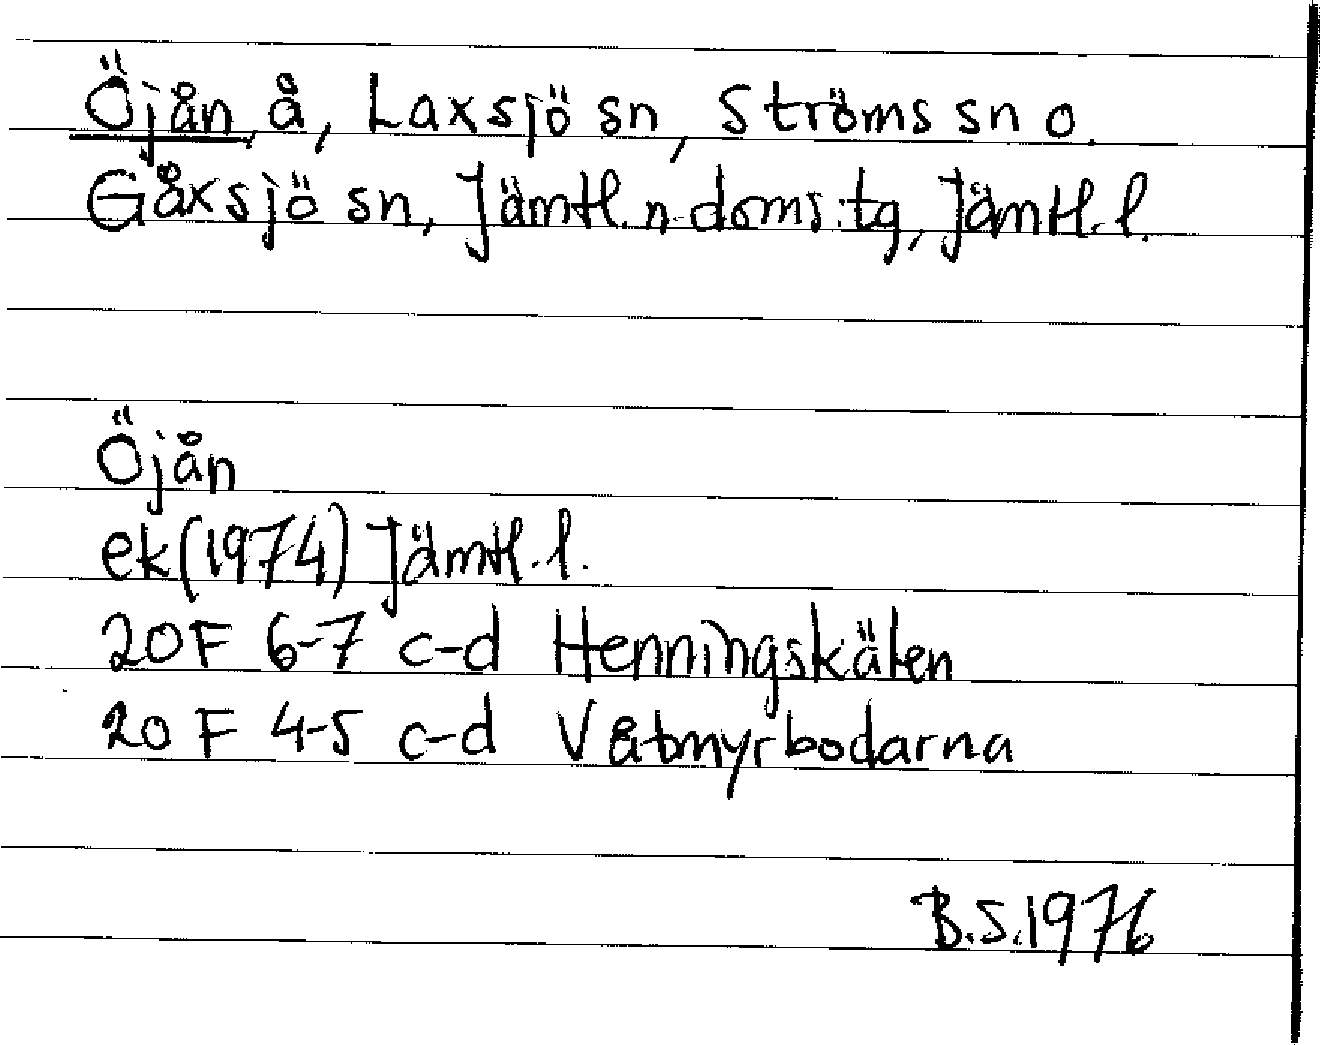 Öjån, å, Laxsjö sn, Ströms sn o.
Gåxsjö sn, Jämtl. n. doms:tg, Jämtl. l.
Öjån
ek (1974) Jämtl. l.
20F 6-7 c-d Henningskälen
20F 4-5 c-d Våtmyrbodarna
B.S. 1976